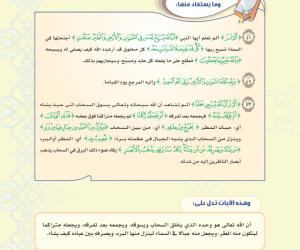 وما يستفاد منها:
٤١ ﴿أَلَمْ تَرَ﴾ ألم تعلم أيها النبي ﴿أَنَّ اللَّهَ يُسَبِّحُ لَهُ مَن فِي السَّمَاوَاتِ وَالْأَرْضِ وَالطَّيْرُ صَافَّاتٍ﴾ أجنحتها في
السماء تسبح ربها ﴿كُلٌّ قَدْ عَلِمَ صَلَاتَهُ وَتَسْبِيحَهُ﴾ كل مخلوق قد أرشده الله كيف يصلي له ويسبحه
﴿وَاللَّهُ عَلِيمٌ بِمَا يَفْعَلُونَ﴾ مطلع على ما يفعله كل عابد، ومسبح، ويجازيهم بذلك.
٤٢ ﴿وَلِلَّهِ مُلْكُ السَّمَاوَاتِ وَالْأَرْضِ وَإِلَى اللَّهِ الْمَصِيرُ﴾ وإليه المرجع يوم القيامة.
٤٣ ﴿أَلَمْ تَرَ أَنَّ اللَّهَ يُزْجِي سَحَابًا﴾ ألم تشاهد أن الله سبحانه وتعالى يسوق السحاب إلى حيث يشاء
﴿ثُمَّ يُؤَلِّفُ بَيْنَهُ﴾ فيجمعه بعد تفرقه ﴿ثُمَّ يَجْعَلُهُ رُكَامًا﴾ ثم يجعله متراكما فوق بعضه ﴿فَتَرَى الْوَدْقَ﴾
أي: حبات المطر ﴿يَخْرُجُ مِنْ خِلَالِهِ﴾ أي: من بين السحاب ﴿وَيُنَزِّلُ مِنَ السَّمَاءِ مِن جِبَالٍ فِيهَا مِن بَرَدٍ﴾
وينزل من السحاب الذي يشبه الجبال في عظمته بردا ﴿فَيُصِيبُ بِهِ مَن يَشَاءُ﴾ أي: المطر أو البرد
﴿وَيَصْرِفُهُ عَن مَّن يَشَاءُ يَكَادُ سَنَا بَرْقِهِ يَذْهَبُ بِالْأَبْصَارِ﴾ يكاد ضوء ذلك البرق في السحاب يذهب
أبصار الناظرين إليه من شدته.
وهذه الآيات تدل على:
أن الله تعالى هو وحده الذي يخلق السحاب ويسوقه، ويجمعه بعد تفرقه، ويجعله متراكما
ليتكون منه المطر، ويجعل منه جبالا في السماء لينزل منها البرد، ويصرفه بين عباده كيف يشاء.